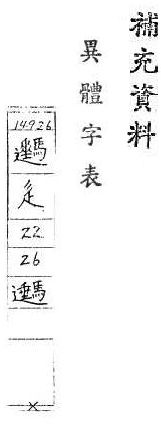 補充資料
異體字表
14926
辵
22
26